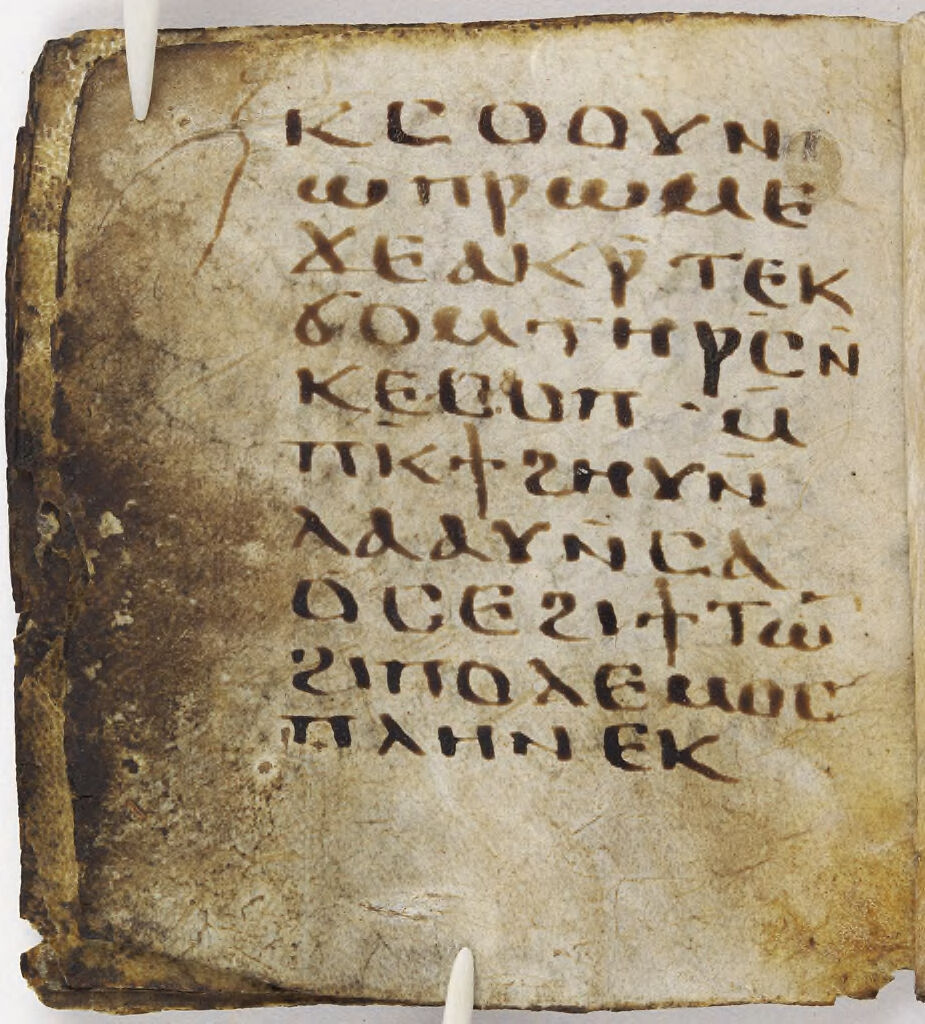 ⲕⲥⲟⲟⲩⲛ
ⲱⲡⲣⲱⲙⲉ
ϫⲉⲁⲕⲣ̄ⲧⲉⲕ
ϭⲟⲙⲧⲏⲣⲥ̄ⲛ̄
ⲕⲉⲥⲟⲡ · ⲙ̄
ⲡⲕ̄ϯϩⲏⲩⲛ̄
ⲗⲁⲁⲩⲛ̄ⲥⲁ
ⲟⲥⲉϩⲓϯⲧⲱⲛ
ϩⲓⲡⲟⲗⲉⲙⲟⲥ
ⲡⲗⲏⲛⲉⲕ